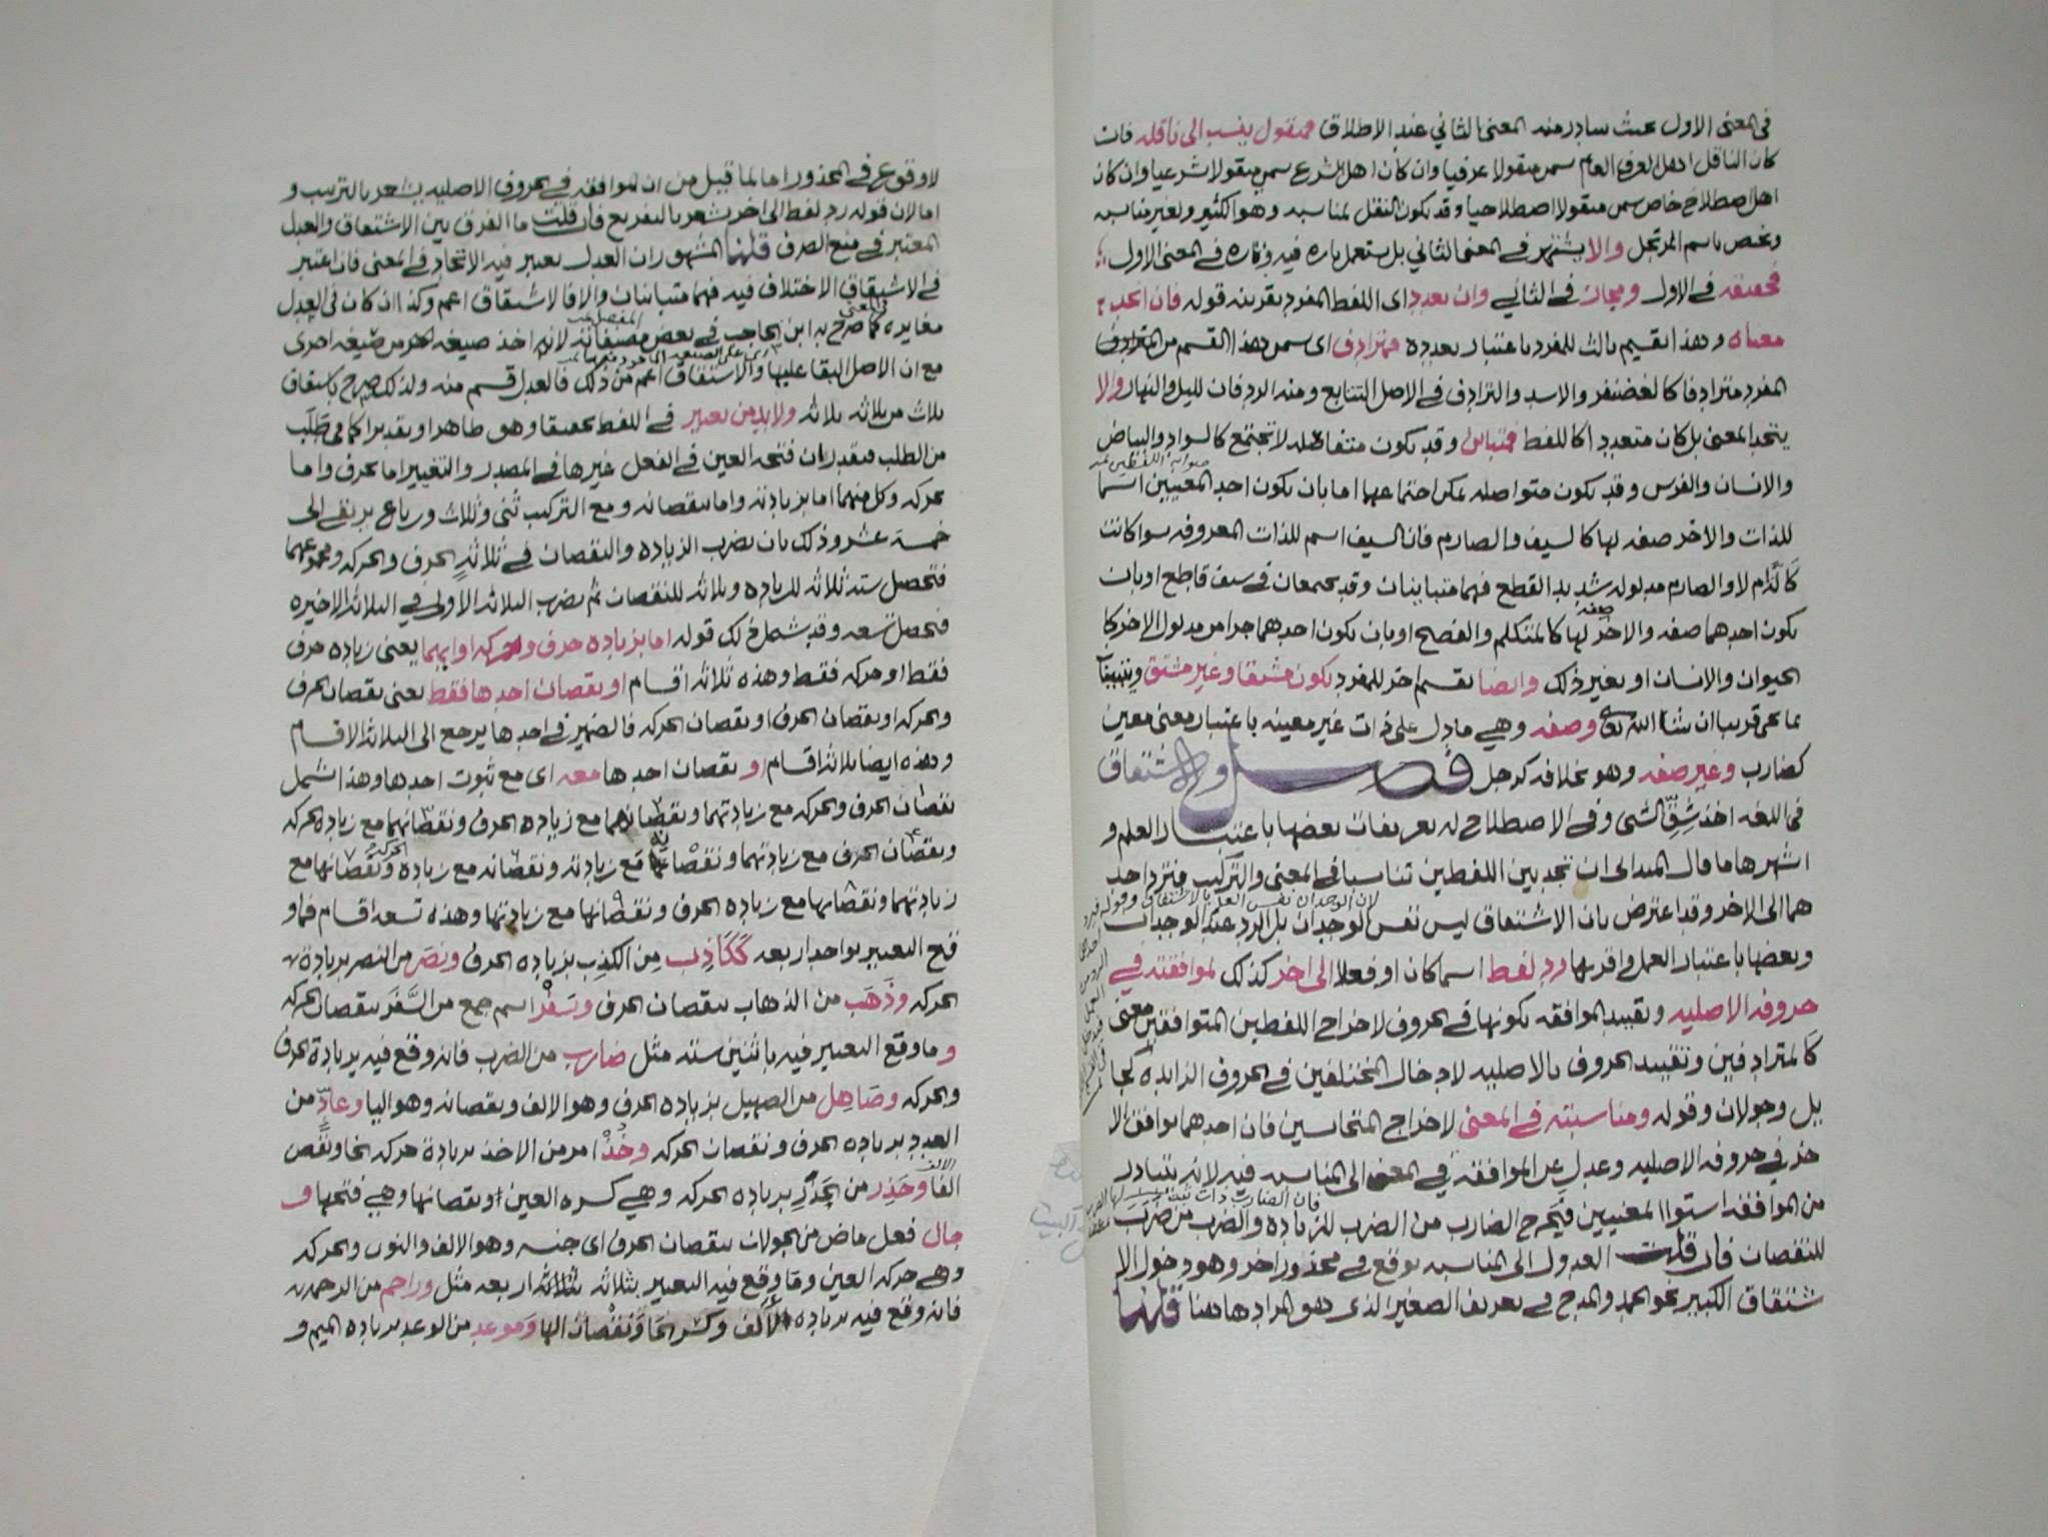 في المعنى الاول بحيث يتبادر منه المعنى الثاني عند الاطلاق فمنقول ينسب الى ناقله فان
كان الناقل اهل العرف العام سمى منقولا عرفيا وان كان اهل الشرع سمى منقولا شرعيا وان كان
اهل اصطلاح خاص سمى منقولا اصطلاحيا وقد يكون النقل لمناسبه وهو الكثير ولغير مناسبه
ويخص باسم المرتجل والا يشتهر في المعنى الثاني بل يستعمل تاره فيه وتاره في المعنى الاول
فحقيقه في الاول ومجاز في الثاني وان تعدد اى اللفظ المفرد بقرينه قوله فان اتحد
معناه وهذا تقسيم ثالث للمفرد باعتبار تعدده فمترادف اى سمى هذا القسم من
المفرد مترادفا كالغضنفر والاسد والترادف في الاصل التتابع ومنه الردفان لليل والنهار والا
يتحد المعنى بل كان متعددا كاللفظ فمتباين وقد يكون متفاصله لا تجتمع كالسواد والبياض
والانسان والفرس وقد يكون متواصله يمكن اجتماعها اما بان يكون احد المعنيين اسما
للذات والاخر صفه لها كالسيف والصارم فان السيف اسم للذات المعروفه سوا كانت
كالّة ام لا والصارم مدلوله شديد القطع فهما متباينان وقد يجتمعان في سيف قاطع او بان
يكون احدهما صفه والاخر صفه لها كالمتكلم والفصيح او بان يكون احدهما جزا من مدلول الاخر كا
الحيوان والانسان او بغير ذلك وايضا تقسيم اخر للمفرد يكون مشتقا وغير مشتق
عما قريب ان شا الله تعالى وصفه وهي ما دل على ذات غير معينه باعتبار معنى معين
كضارب وغير صفه وهو بخلافه كرجل فصل والاشتقاق
في اللغه اخذ شِقّ الشى وفي الاصطلاح له تعريفات بعضها باعتبار العلم و
اشهرها ما قال الميدانى ان تجد بين اللفظين تناسبا في المعنى والتركيب فترد احد
هما الى الاخر وقد اعترض بان الاشتقاق ليس نفس الوجدان بل الرد عند الوجدان
وبعضها باعتبار العمل واقربها رد لفظ اسما كان او فعلا الى اخر كذلك لموافقته في
حروفه الاصليه وتقييد الموافقه بكونها في الحروف لاخراج اللفظين المتوافقين معنى
كالمترادفين وتقييد الحروف بالاصليه لادخال المختلفين في الحروف الزايده كجا
يل وجولان وقوله ومناسبته في المعنى لاخراج المتجانسين فان احدهما يوافق الا
خر في حروفه الاصليه وعدل عن الموافقه في المعنى الى المناسبه فيه لانه يتبادر
من الموافقه استوا المعنيين فيخرج الضارب من الضرب للزياده والضرب من ضَرَبَ
للنقصان فان قلت العدول الى المناسبه يوقع في محذور اخر وهو دخول الا
شتقاق الكبير نحو الحمد والمدح في تعريف الصغير الذى هو المراد هاهنا قلنا
لا وقوع في المحذور اما لما قيل من ان الموافقه في الحروف الاصليه يشعر بالترتيب و
اما لان قوله رد لفظ الى اخر يشعر بالتفريع فان قلت ما الفرق بين الاشتقاق والعدل
المعتبر في منع الصرف قلنا المشهور ان العدل يعتبر فيه الاتحاد في المعنى فان اعتبر
في الاشتقاق الاختلاف فيه فهما متباينان والا فالاشتقاق اعم وكذا ان كان في العدل
مغايره كما صرح به ابن الحاجب في بعض مصنفاته لانه اخذ صيغه من صيغه اخرى
مع ان الاصل البقا عليها والاشتقاق اعم من ذلك فالعدل قسم منه ولذلك صرح باشتقاق
ثلاث من ثلاثه ثلاثه ولا بد من تغيير في اللفظ تحقيقا وهو ظاهر او تقديرا كما في طَلَبَ
من الطلب فيقدر ان فتحه العين في الفعل غيرها في المصدر والتغيير اما بحرف واما
بحركه وكل منهما اما بزيادته واما بنقصانه ومع التركيب ثُنى وثلاث ورباع يرتقى الى
خمسة عشر وذلك بان يضرب الزياده والنقصان في ثلاثةٍ الحرف والحركه ومجموعهما
فتحصل سته ثلاثه للزياده وثلاثه للنقصان ثم يضرب الثلاثه الاولى في الثلاثه الاخيره
فتحصل تسعه وقد شمل ذلك قوله اما بزياده حرف وحركه او ايهما يعنى زياده حرف
فقط او حركه فقط وهذه ثلاثه اقسام او نقصان احدها فقط يعنى نقصان الحرف
والحركه او نقصان الحرف او نقصان الحركه فالضمير في احدها يرجع الى الثلاثه الاقسام
وهذه ايضا ثلاثه اقسام او نقصان احدها معه اى مع ثبوت احدها وهذا شمل
نقصان الحرف والحركه مع زيادتهما ونقصانهما مع زياده الحرف ونقصانهما مع زياده الحركه
ونقصان الحرف مع زيادتهما ونقصانه مع زيادته ونقصانه مع زياده الحركه ونقصانها مع
زيادتهما ونقصانها مع زياده الحرف ونقصانها مع زيادتها وهذه تسعه اقسام فما و
قع التغيير بواحد اربعه ككَاذِب مِن الكَذِب بزياده الحرف ونصَر من النصر بزيادة
الحركه وذَهَب من الذهاب بنقصان الحرف وسَفْر اسم جمع من السَّفَر بنقصان الحركه
وما وقع التغيير فيه باثنين سته مثل ضارب من الضرب فانه وقع فيه بزيادة الحرف
والحركه وصَاهِل من الصهيل بزياده الحرف وهو الالف ونقصانه وهو اليا وعادٍّ من
العدد بزياده الحرف ونقصان الحركه وخُذْ امر من الاخذ بزيادة حركه الخا ونقص
الفا وحَذِر من الحَذَر بزياده الحركه وهي كسره العين ونقصانها وهي فتحها و
جال فعل ماض من الجولان بنقصان الحرف اى جنسه وهو الالف والنون والحركه
وهي حركه العين وما وقع فيه التغيير بثلاثه اربعه مثل وراحم من الرحمه
فانه وقع فيه بزياده الالف وكسر الحا ونقصان الها وموعد من الوعد بزياده الميم و